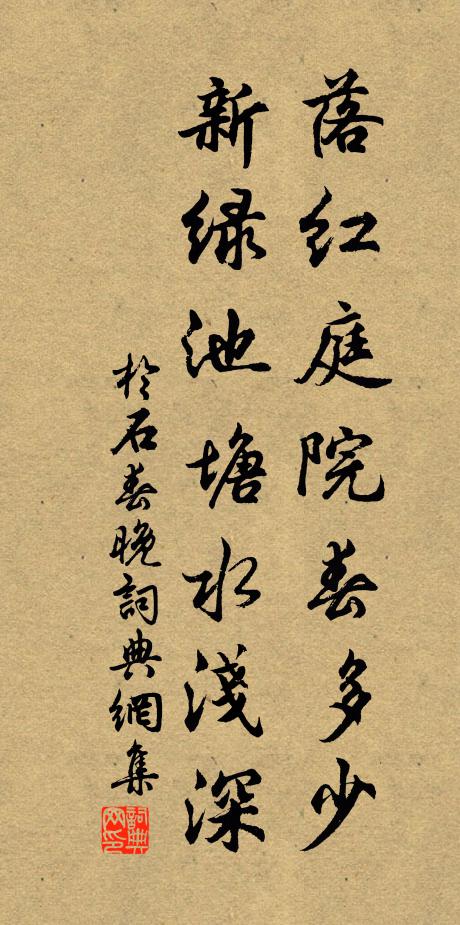 落红庭院春多少
新绿池塘水淺深
於石春晚詞典網集
詞典网印